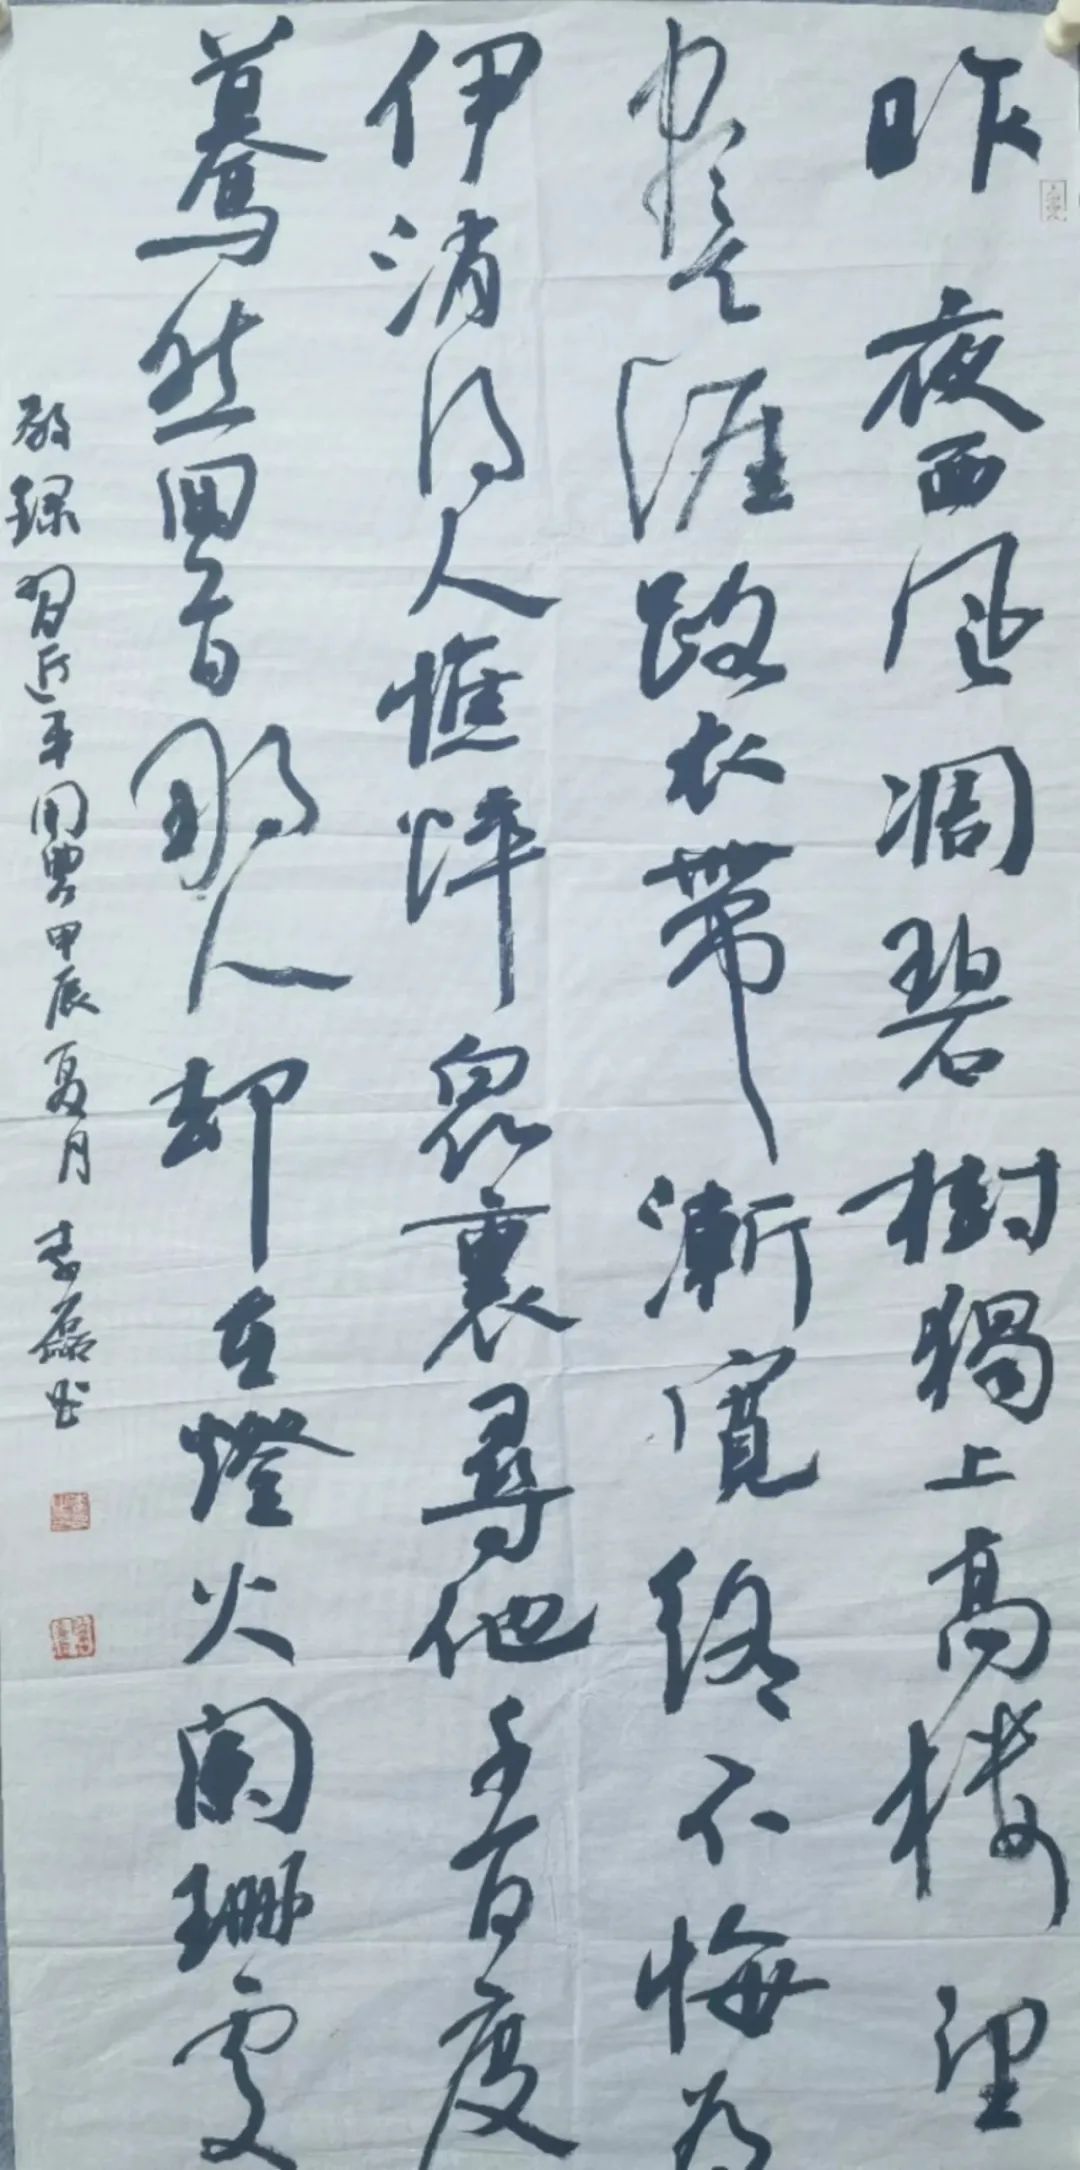 昨夜西風凋碧樹獨上高樓望
盡天涯路衣帶漸寬終不悔為
伊消得人憔悴眾裏尋他千百度
驀然回首那人却在燈火闌珊處
敬錄習近平用典甲辰夏月李磊书